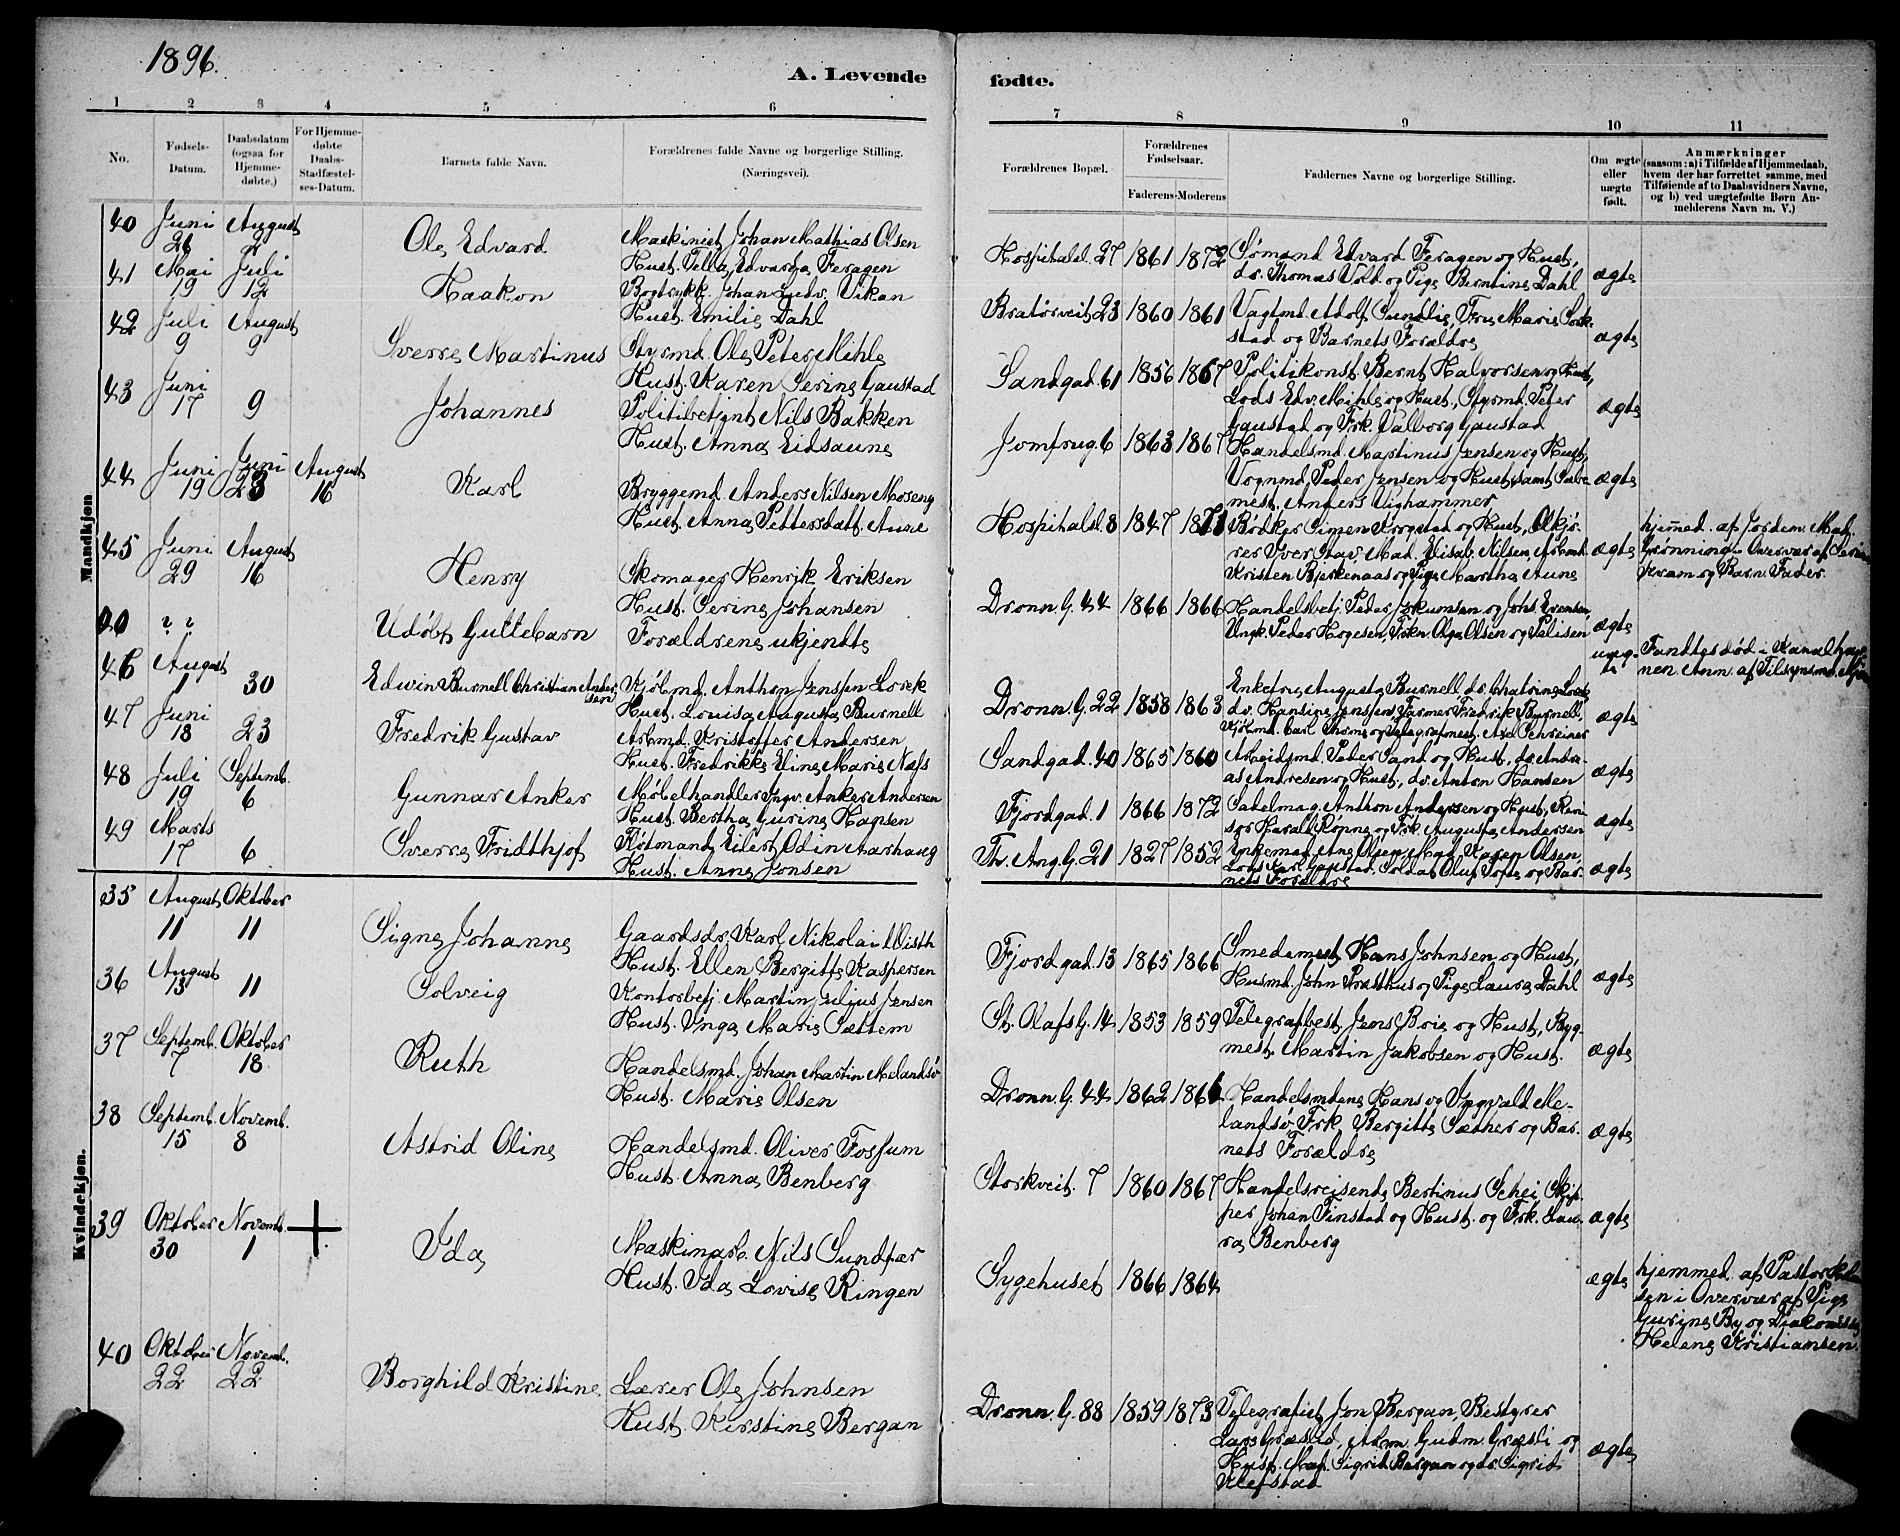 1896.
A. Levende fødte.
1 2 3 4 5 6 7 8 9 10 11
No.
Fødsels-Datum.
Daabsdatum (ogsaa for Hjemme-døbte.)
For Hjemme-døbte Daabs-Stadfæstel-ses-Datum.
Barnets fulde Navn.
Forældrenes fulde Navne og borgerlige Stilling. (Næringsvei).
Forældrenes Bopæl.
Forældrenes Fødselsaar.
Faderens- Moderens
Faddernes Navne og borgerlige Stilling.
Om ægte eller uægte født.
Anmærkninger (saasom: a) i Tilfælde af Hjemmedaab, hvem der har forrettet samme, med Tilføiende af to Daabsvidners Navne, og b) ved uægtefødte Børn Anmelderens Navn m. V.)
Mandkjøn
40 Juni 21 August 2 Ole Edvard
Maskinist Johan Mathias Olsen
Hust. Pella Edvarda Feragen
Hospitalsl. 27 1861 1872
Sømand Edvard Feragen og Hust,
ds. Thomas Vold og Pige Berntine Dahl
ægte
41 Mai 19 Juli 12 Haakon
Bogtrykk. Johan Ludv. Vikan
Hust. Emilie Dahl
Bratørveit 23 1860 1861
Vagtmd. Adolf Sundlie, Fru Marie Sork-
stad og Barnets Forældre
ægte
42 Juli 9 August 9 Sverre Martinus
Styrmd. Ole Peter Mihle
Hust. Karen Serine Gaustad
Sandgad. 61 1856 1867
Politikonst. Bernt Halvorsen og Hust,
Lods Edv. Mihle og Hust., Styrmd. Peter
Gaustad og Frk. Valborg Gaustad
ægte
43 Juni 17 9 Johannes
Politibetjnt Nils Bakken
Hust. Anna Eidsaune
Jomfrug. 6 1863 1867
Handelsmd. Martinus Jensen og Hust,
Vognmd. Peder Jensen og Hust, samt
mest. Anders Vighammer
ægte
44 Juni 19 Juni 23 August 16 Karl
Bryggemd. Anders Nilsen Moseng
Hust. Anna Pettersdatt. Aune
Hospitalsl. 8 1847 1871
Bødker Simen og Hust,
rer Iver Stav, Mad. Elisab. Nilsen, Arbmd.
Kristen Bjerkenaas og Pige Martha Aune
ægte
hjemmed. af Jordem. Mad.
Grønning i Overvær af
Kvam og Barn. Fader.
45 Juni 29 August 16 Henry
Skomager Henrik Eriksen
Hust. Serine Johansen
Dronn. G. 44 1866 1866
Handelsbetj. Peder Jokumsen og Johs. Evensen,
Ungk. Peder Hogesen, Frkn. Olga Olsen og
ægte
? ? Udøbt Guttebarn
Forældrene ukjendte
uæg-
te
Fandtes død i Kanalhav-
nen. Anm. af Tilsynsmd.
46 August 1 30 Edwin Burnell Christian Ander-
sen
Kjøbmd. Anthon Jenssen Lorck
Hust. Louise Augusta Burnell
Dronn. G. 22 1858 1863
Enkefru Augusta Burnell, ds. Chatrine Lorck,
ds. Hansine Jenssen, Farmer Fredrik Burnell,
Kjøbmd. Carl Thoms og Telegrafmest. Axel Schreiner
ægte
47 Juni 18 23 Fredrik Gustav
Arbmd. Kristoffer Andersen
Hust. Fredrikke Eline Marie Næss
Sandgad. 40 1865 1860
Arbeidsmd. Peder Sand og Hust, ds. Andre-
as Andresen og Hust, ds. Anton Hansen
ægte
48 Juli 19 Septemb. 6 Gunnar Anker
Møbelhandler Ingv. Anker Andersen
Hust. Bertha Gurine Hansen
Fjordgad. 1 1866 1872
Sadelmag. Anthon Anderssen og Hust, Revi-
sor Harald Rønne og Frk. Augusta Andersen
ægte
49 Marts 17 6 Sverre Fridthjof
Eilert Odin Aarhaug
Hust. Anne Jonsen
Th. Ang. G. 21 1827 1852
Enkemad. Ane Olsen, Mad. Karen Olsen,
Lods Karl Gaustad, Soldat Oluf og Bar-
nets Forældre
ægte
Kvindekjøn.
35 August 11 Oktober 11 Signe Johanne
Gaardsdr. Karl Nikolai
Hust. Ellen Bergitte Kaspersen
Fjordgad. 13 1865 1866
Smedemest. Hans Johnsen og Hust,
Husmd. John og Pige Laura Dahl
ægte
36 August 13 11 Solveig
Kontorbetj. Martin Julius Jensen
Hust. Inga Marie Sættem
St. Olafs G. 14 1853 1859
Telegrafbest. Jens Boie og Hust, Byg-
mest. Martin Jakobsen og Hust.
ægte
37 Septemb. 7 Oktober 18 Ruth
Handelsmd. Johan Martin Melandsø
Hust. Marie Olsen
Dronn. G. 44 1862 1861
Handelsmdene Hans og Ingvald Me-
landsø, Frk. Bergitte Sæther og Bar-
nets Forældre
ægte
38 Septemb. 15 Novemb. 8 Astrid Oline
Handelsmd. Oliver Fossum
Hust. Anna Benberg
Storkveit. 7 1860 1867
Handelsreisende Bertinus Schei, Skip-
per Johan Finstad og Hust. og Frk. Lau-
ra Benberg
ægte
39 Oktober 30 Novemb. 1 + Ida
Maskinarb. Nils Sundfær
Hust. Ida Lovise Ringen
Sygehuset 1866 1864
ægte
hjemmed. af Pastor
sen i Overvær af Pige
Gurine By og Diakonisse
Helene Kristiansen.
40 Oktober 22 Novemb. 22 Borghild Kristine
Lærer Ole Johnsen
Hust. Kirstine Bergan
Dronn. G. 88 1859 1873
Telegrafist Jon Bergan, Bestyrer
Lars Græsli, Adm. Gudm. Græsli og
Hust. Sigrid Bergan og ds. Sigrid
Klefstad
ægte